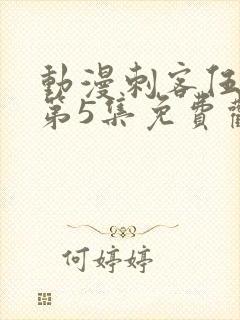 動漫刺客伍
第5集免費觀
何婷婷